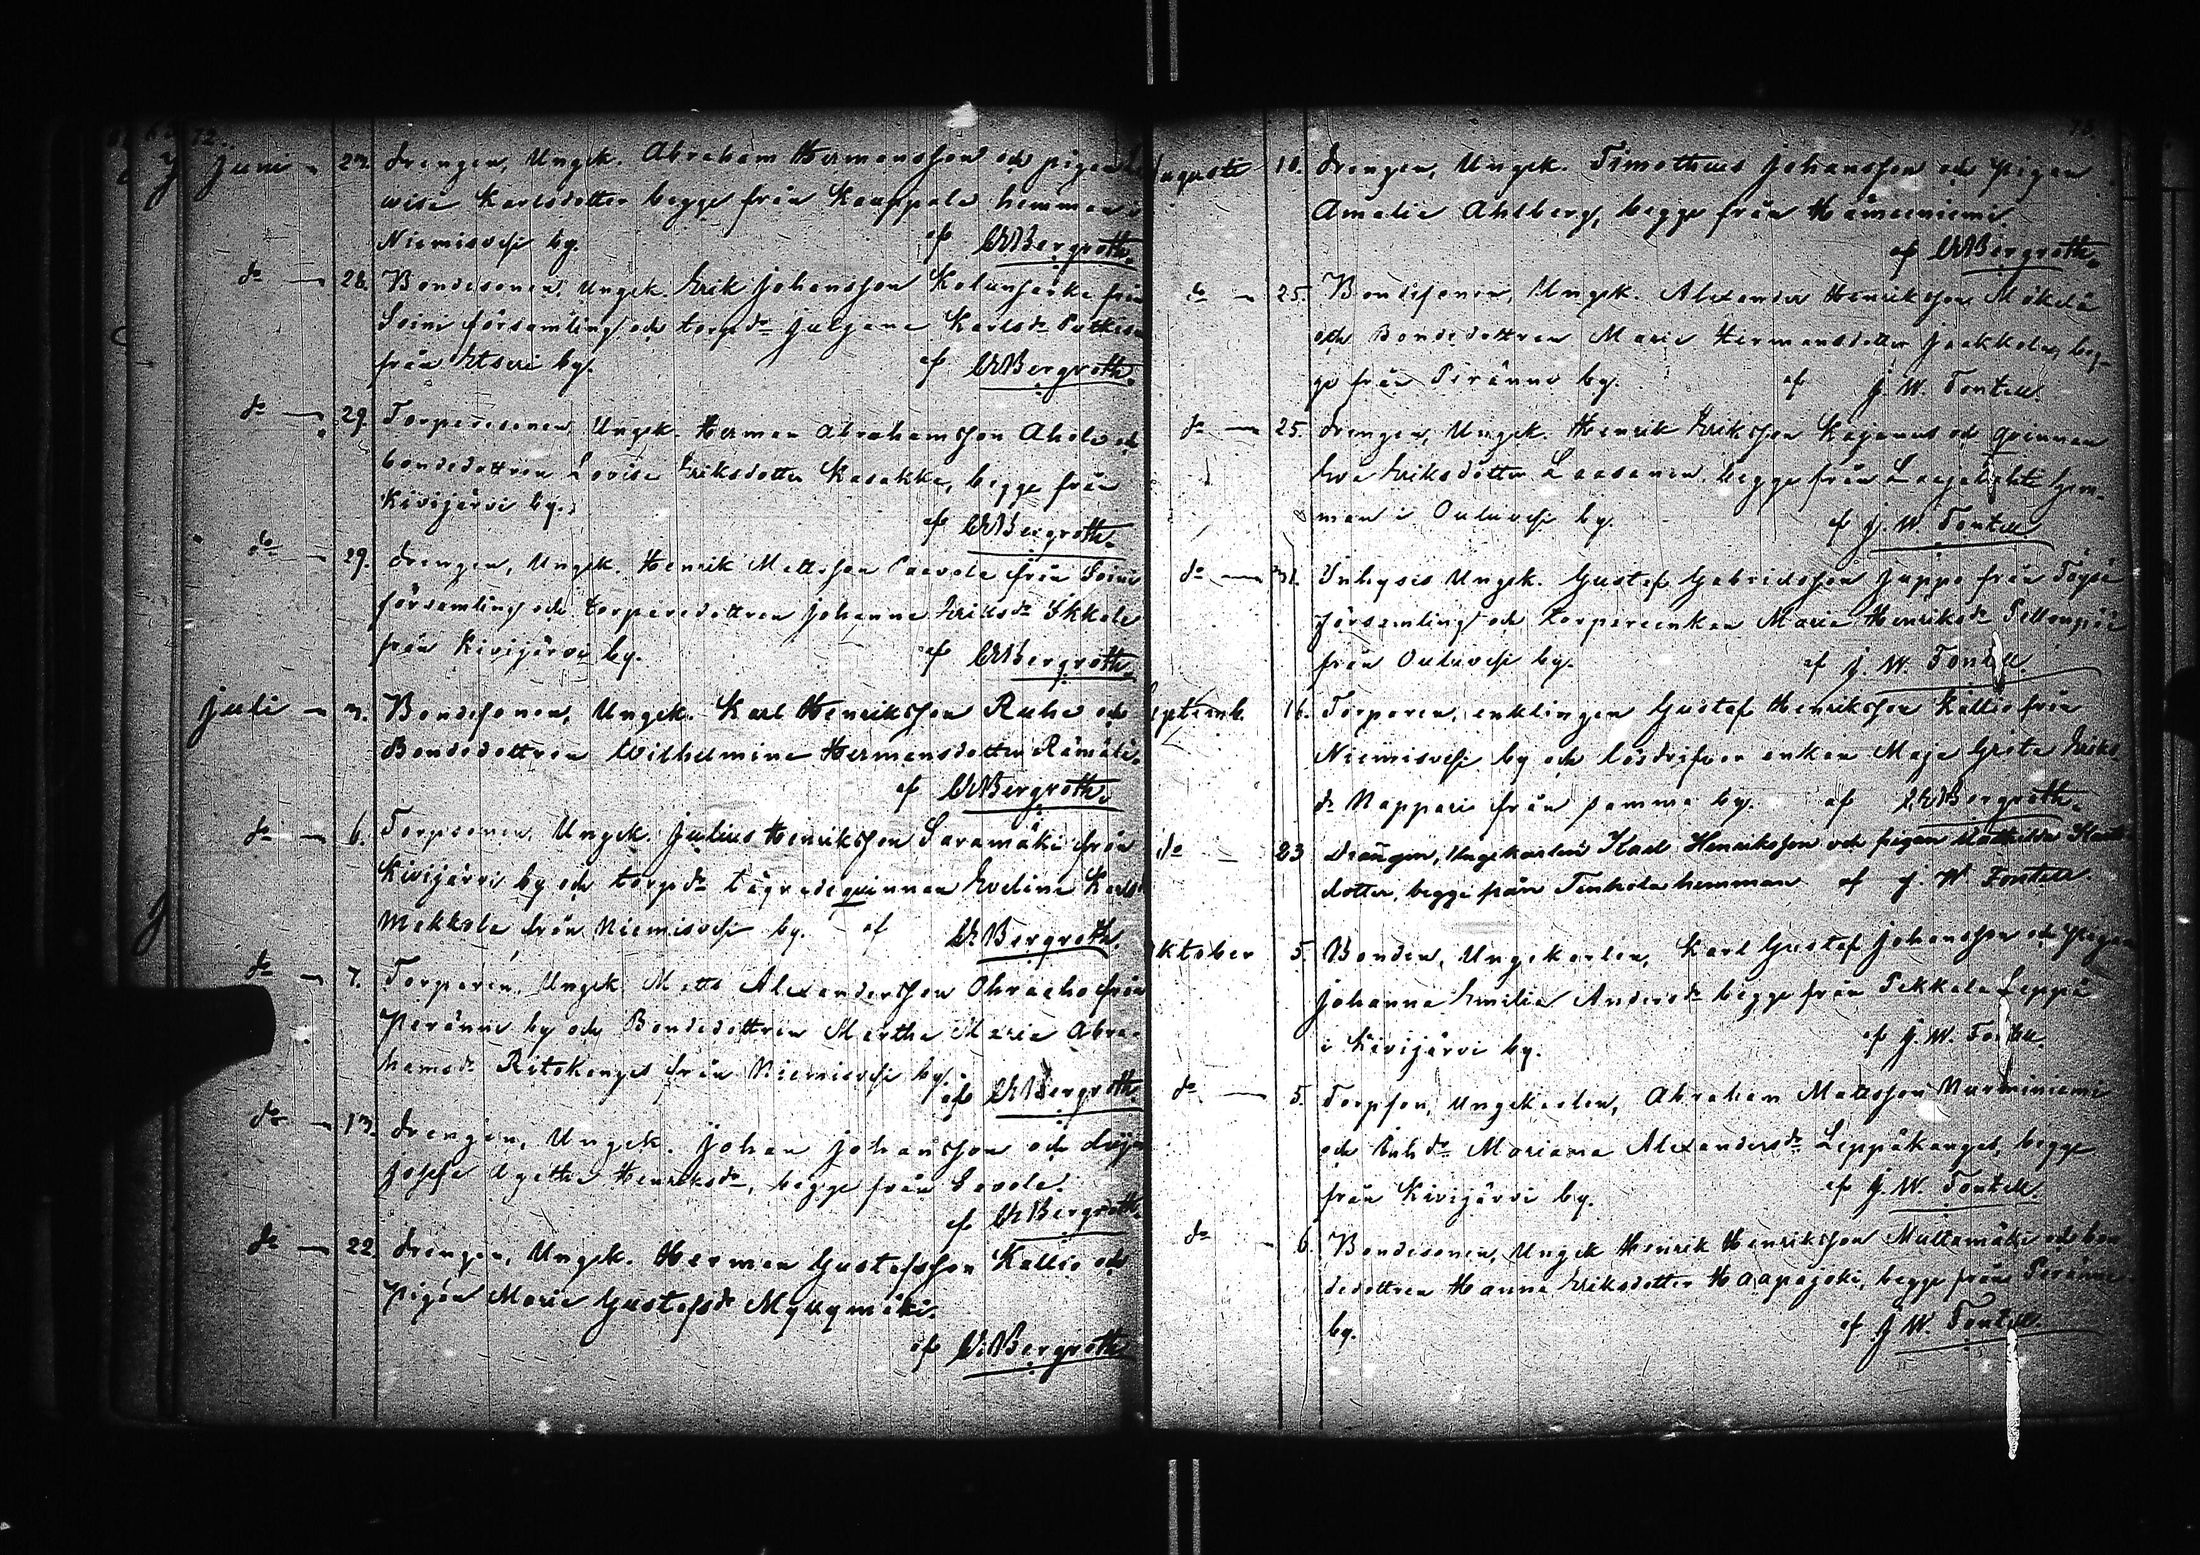 72.
Juni — 23. Drengen, Ungk. Abraham Hermansson och pigan Lo
wisa Karlsdotter begge från Kauppala hemman i
Niemisvesi by. af CRBergroth.
do — 28. Bondesonen, Ungk. Erik Johansson Kolunsarka från
Soini församling och torp.dr Juljana Karlsdr
från Etseri by. af CRBergroth.
do — 29. Torparesonen, Ungk. Herman Abrahamsson Ahola och
bondedottren Lovisa Eriksdotter Kasakka, begge från
Kivijärvi by. af CRBergroth.
do — 29. Drengen, Ungk. Henrik Mattsson Paavola från Soini
församling och torparedottren Johanna Eriksdr Ukkola
från Kivijärvi by. af CRBergroth.
Juli — 3. Bondesonen, Ungk. Karl Henriksson Ruha och
Bondedottren Wilhelmina Hermansdotter Rämälä.
af CRBergroth.
do — 6. Torpsonen, Ungk. Julius Henriksson Saramäki från
Kivijärvi by och torp.dr lägradequinnan Evelina Karlsdr
Makkola från Niemisvesi by. af CRBergroth.
do — 7. Torparen, Ungk. Matts Alexandersson Ohraaho från
Peränne by och Bondedottren Martha Maria Abra-
hamsdr Ritokangas från Niemisvesi by. af CRBergroth.
do — 13. Drengen, Ungk. Johan Johansson och
Josefa Agatha Henriksdr, begge från
af CRBergroth.
do — 22. Drengen, Ungk. Herman Gustafsson Kallio och
Pigan Maria Gustafsdr Myllymäki.
af CRBergroth.
73.
Augusti 10. Drengen, Ungk. Timotheus Johansson och Pigan
Amalia Ahlberg, begge från Hämeeniemi
af CRBergroth.
do — 25. Bondesonen, Ungk. Alexander Henriksson Mäkelä
och Bondedottren Maria Hermansdotter Jaakkola, beg-
ge från Peränne by. af J. W. Fontell.
do — 25. Drengen, Ungk. Henrik Eriksson Kajanus och qvinnan
Eva Eriksdotter Laasanen, begge från hem-
man i Ouluvesi by. af J. W. Fontell.
do — 31. Inhyses Ungk. Gustaf Gabrielsson Juppo från Töysä
församling och torpareenkan Maria Henriksdr
från Ouluvesi by. af J. W. Fontell
Septemb. 16. Torparen, enklingen Gustaf Henriksson Kallio från
Niemisvesi by och lösdrifver enkan Maja Greta Eriks-
dr Nappari från samma by. af CRBergroth.
do — 23 Drängen, Ungekarlen Karl Henriksson och pigan Mathilda
dotter, begge från Tenhola hemman af J. W Fontell.
Oktober 5. Bonden, Ungekarlen, Karl Gustaf Johansson och Pigan
Johanna Emilia Andersdr begge från Pekkala Leppä
i Kivijärvi by. af J. W. Fontell.
do — 5. Torpson, Ungekarlen, Abraham Mattsson Nurminiemi
och Inh.dr Mariana Alexandersdr Leppäkangas, begge
från Kivijärvi by. af J. W. Fontell.
do — 6. Bondesonen, Ungk Henrik Henriksson Multamäki och bon
dedottren Hanna Eriksdotter Haapajoki, begge från Peränne
by. af J W. Fontell